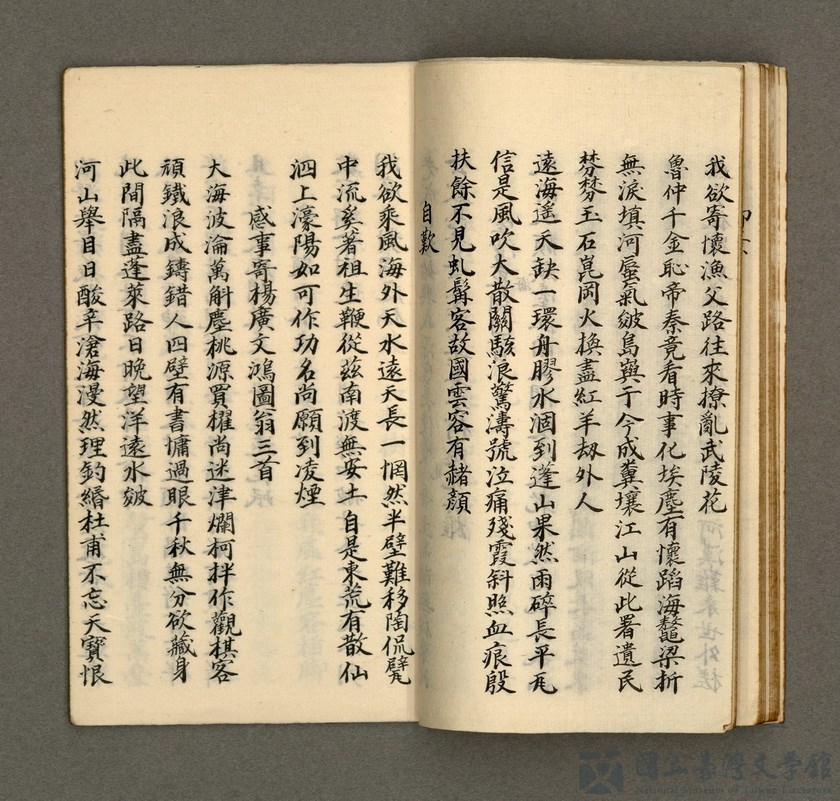 我欲寄懷漁父路往來撩亂武陵花
魯仲千金恥帝秦竟看時事化埃塵有懷蹈海鼇梁折
無淚填河蜃氣皴島嶼于今成糞壤江山從此署遺民
棼棼玉石崑岡火換盡紅羊刼外人
遠海遙天缺一環舟膠水涸到蓬山果然雨碎長平瓦
信是風吹大散關駭浪驚濤號泣痛殘霞斜照血痕殷
扶餘不見虬髯客故國雲容有赭顏
自歎
我欲乘風海外天水遠天長一惘然半壁難移陶侃甓
中流爰著祖生鞭從茲南渡無安土自是東荒有散仙
泗上濠陽如可作功名尚願到凌煙
感事寄楊廣文鴻圖翁三首
大海波淪萬斛塵桃源買櫂尚迷津爛柯拌作觀棋客
頑鐵浪成鑄錯人四壁有書慵過眼千秋無分欲藏身
此間隔盡蓬萊路日晚望洋遠水皴
河山舉目日酸辛滄海漫然理釣緡杜甫不忘天寶恨
國立臺灣文學館
National Museum of Taiwan Literature